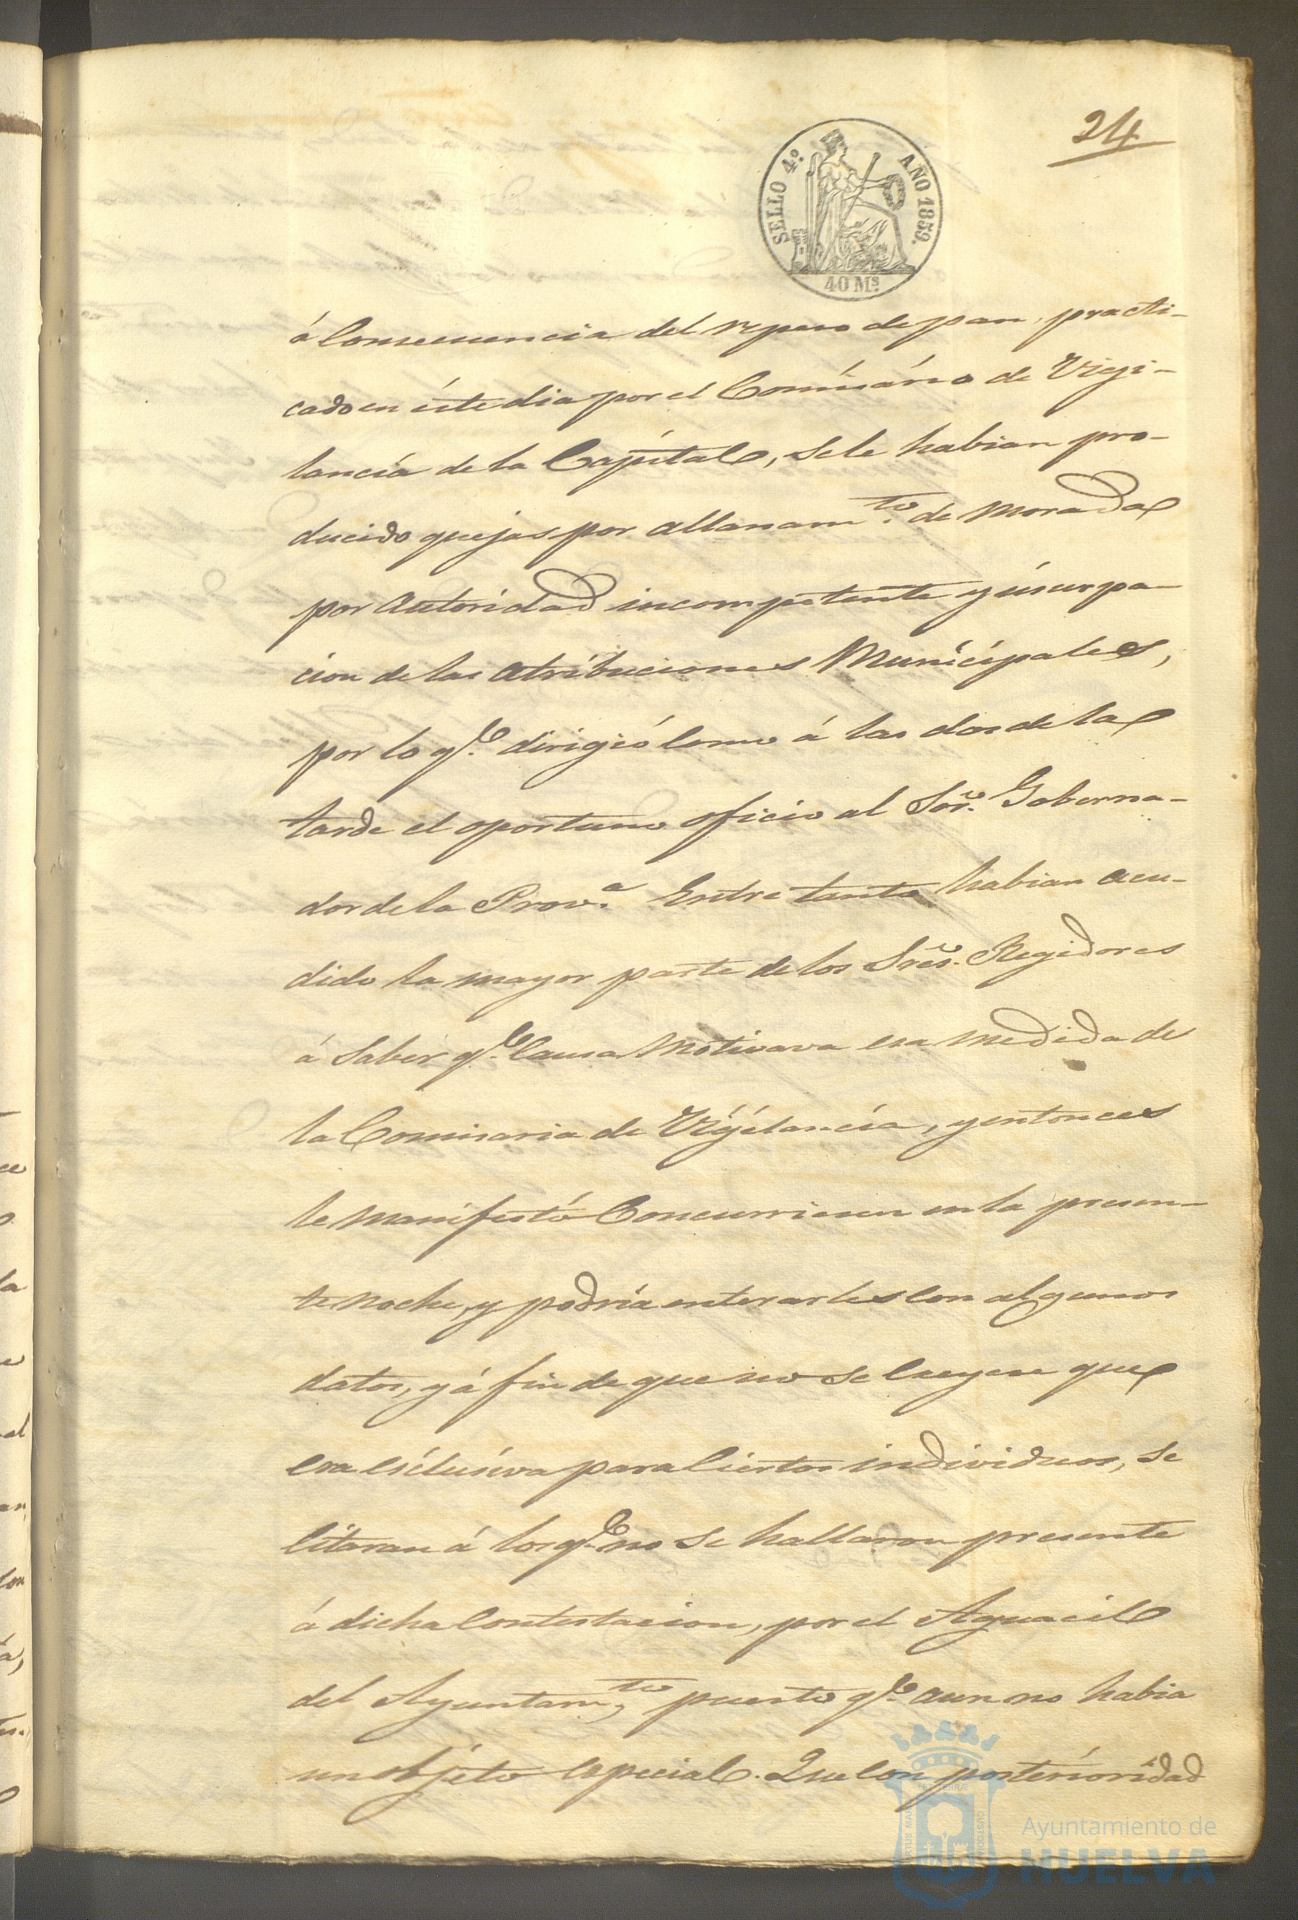 24
SELLO 4.º AÑO 1859.
40 Ms.
á consecuencia del repeso de pan, practi-
cado en éste dia por el Comisário de Vigi-
lancia de la Capital, se le habian pro-
ducido quejas por allanamto. de morada
por autoridad incompetente y úsurpa-
cion de las atribuciones Municipales,
por lo qe. dirigió como á las dos de la
tarde el oportuno oficio al Sor. Goberna-
dor de la Prova. Entre tanto habian acu-
dido la mayor parte de los Sres. Regidores
á saber qe. causa motivava esa medida de
la Comisaria de Vigilancia, y entonces
le manifestó concurriesen en la presen-
te noche, y podría enterarles con algunos
datos, y á fin de que no se creyese que
era esclusiva para ciertos individuos, se
citaran á los qe. no se hallaron presente
á dicha contestacion, por el Aguacil
del Ayuntamto., puesto qe. aun no habia
un objeto especial. Que con posterioridad
Ayuntamiento de
HUELVA